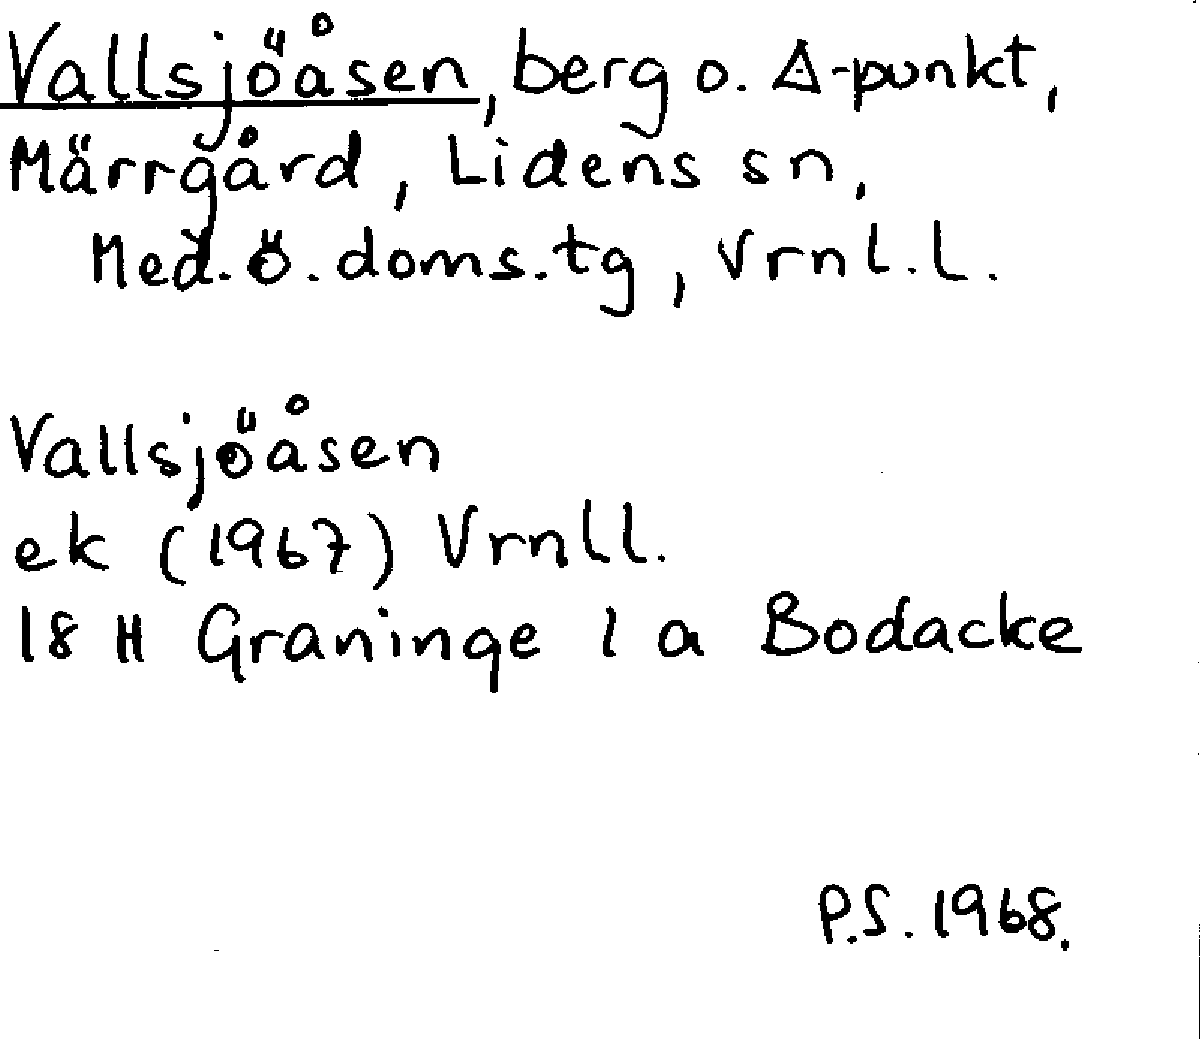 Vallsjöåsen, berg o. ∆-punkt,
Märrgård, Lidens sn,
Med. Ö. doms. tg, Vrnl. l.
Vallsjöåsen
ek (1967) Vrnll.
18 H Graninge 1 a Bodacke
P.S. 1968.